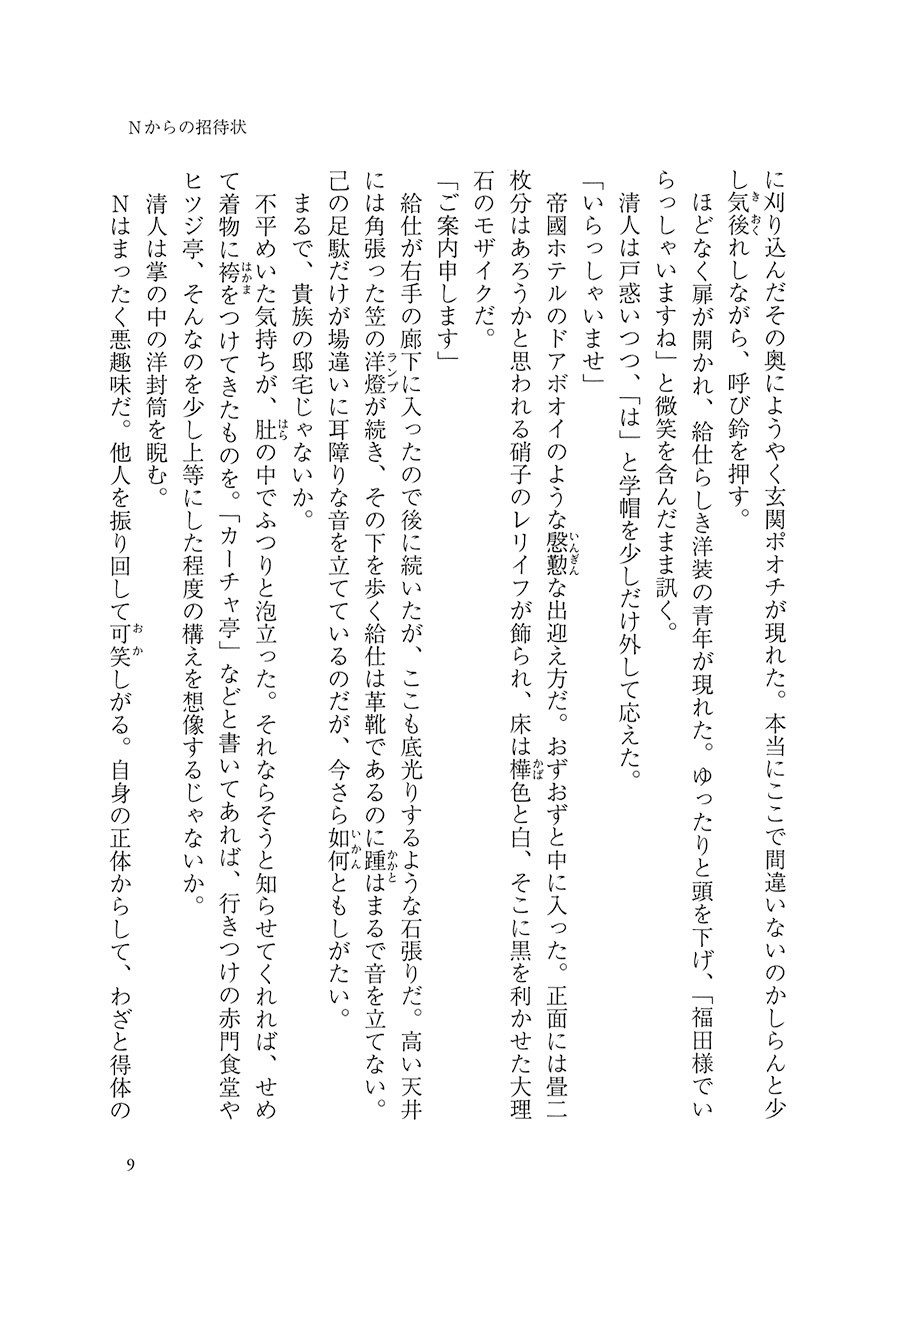 Nからの招待状
に刈り込んだその奥にようやく玄関ポオチが現れた。本当にここで間違いないのかしらんと少
し気後れしながら、呼び鈴を押す。
ほどなく扉が開かれ、給仕らしき洋装の青年が現れた。ゆったりと頭を下げ、「福田様でい
らっしゃいますね」と微笑を含んだまま訊く。
清人は戸惑いつつ、「は」と学帽を少しだけ外して応えた。
「いらっしゃいませ」
帝國ホテルのドアボオイのような慇懃な出迎え方だ。おずおずと中に入った。正面には畳二
枚分はあろうかと思われる硝子のレリイフが飾られ、床は樺色と白、そこに黒を利かせた大理
石のモザイクだ。
「ご案内申します」
給仕が右手の廊下に入ったので後に続いたが、ここも底光りするような石張りだ。高い天井
には角張った笠の洋燈が続き、その下を歩く給仕は革靴であるのに踵はまるで音を立てない。
己の足駄だけが場違いに耳障りな音を立てているのだが、今さら如何ともしがたい。
まるで、貴族の邸宅じゃないか。
不平めいた気持ちが、肚の中でふつりと泡立った。それならそうと知らせてくれれば、せめ
て着物に袴をつけてきたものを。「カーチャ亭」などと書いてあれば、行きつけの赤門食堂や
ヒツジ亭、そんなのを少し上等にした程度の構えを想像するじゃないか。
清人は掌の中の洋封筒を睨む。
Nはまったく悪趣味だ。他人を振り回して可笑しがる。自身の正体からして、わざと得体の
9